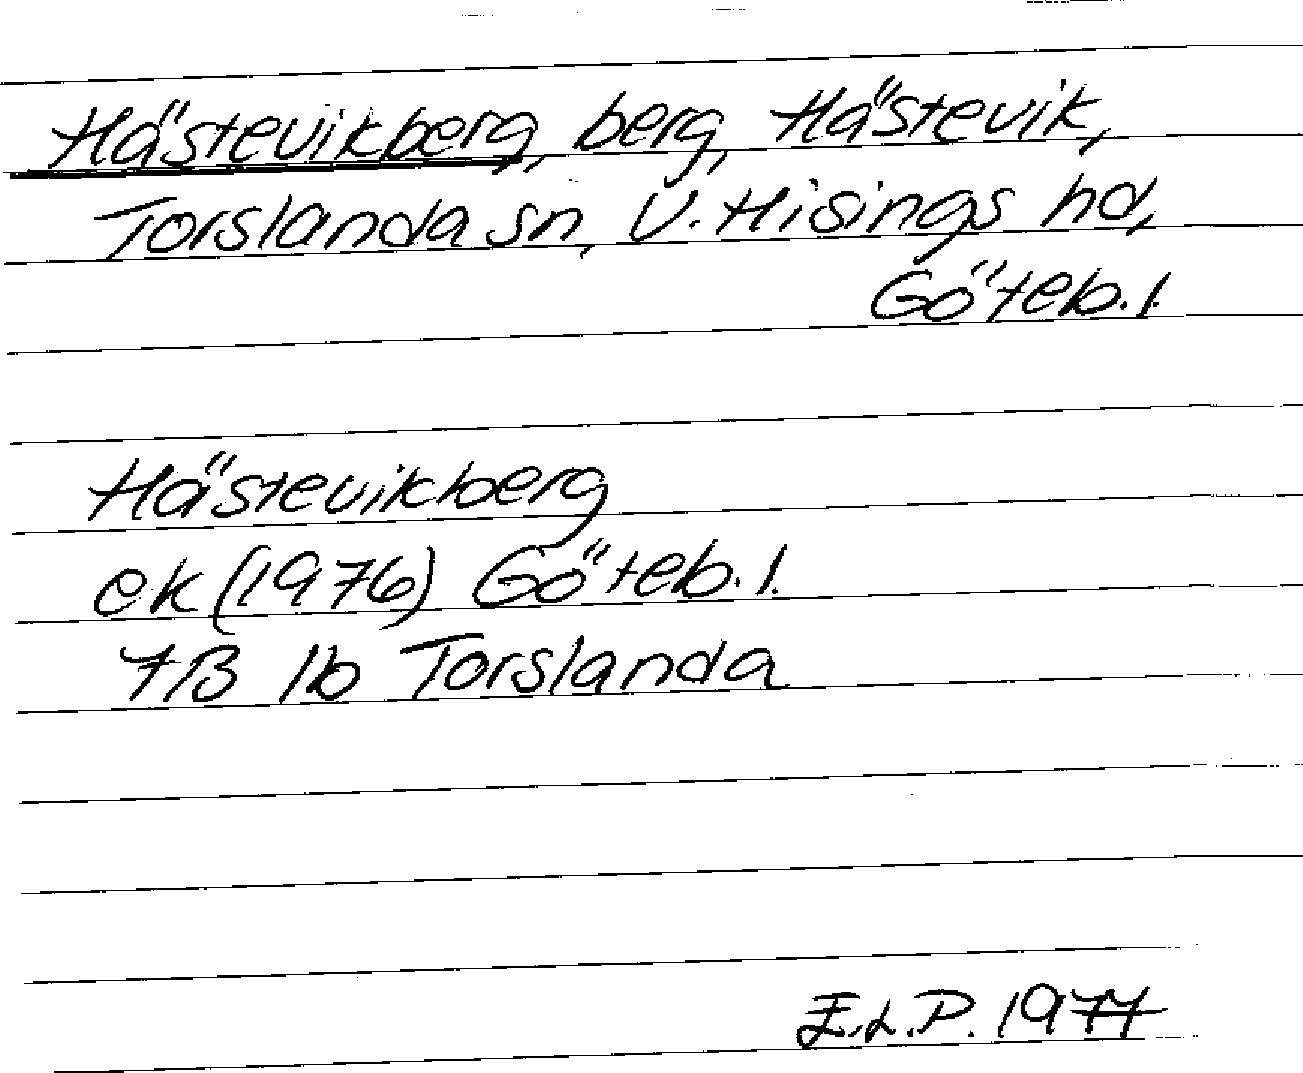 Hästevikberg, berg, Hästevik,
Torslanda sn, V. Hisings hd,
Göteb. l.
Hästevikberg
ek (1976) Göteb. l.
7B 1b Torslanda
E.L.P. 1977